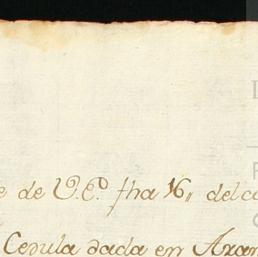 de V.E.ª fha 16,, del
Cedula dada en Aran